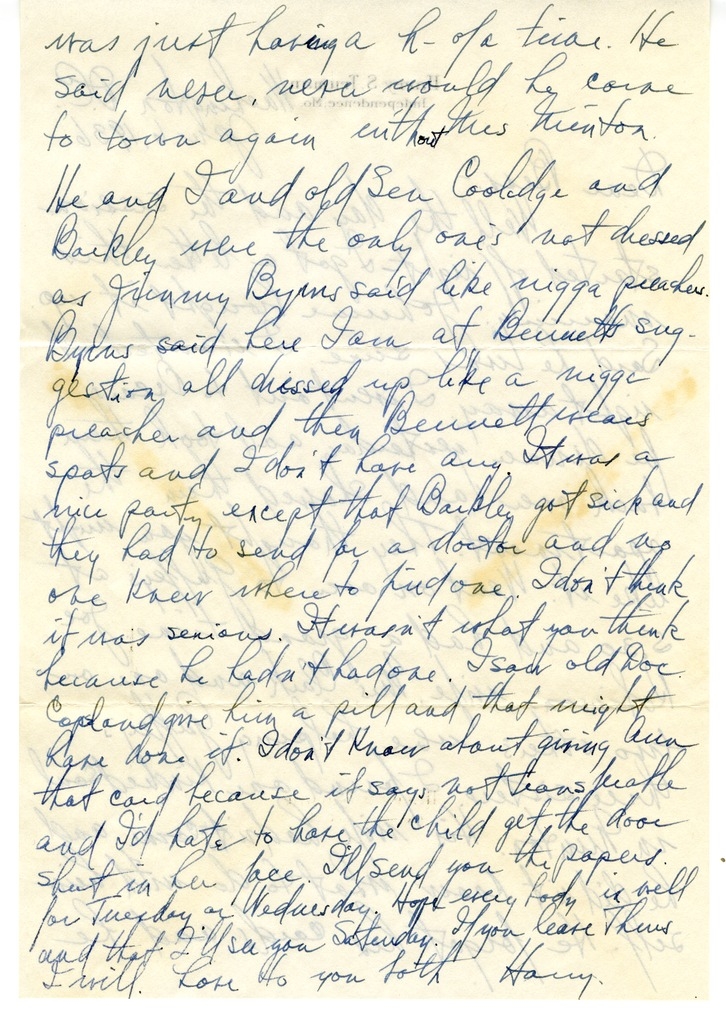 was just having a h- of a time. He
said never, never would he come
to town again without this Minton.
He and I and old Sen Coolidge and
Barkley were the only one's not dressed
as Jimmy Byrns said like nigga preachers.
Byrns said here I am at Bennetts sug-
gestion all dressed up like a nigga
preacher and then Bennett wears
spats and I don't have any. It was a
nice party except that Barkley got sick and
they had to send for a doctor and no
one knew where to find one. I don't think
it was serious. It wasn't what you think
because he hadn't had one. I saw old Doc.
Copland give him a pill and that might
have done it. I don't know about giving Ann
that card because it says not transferable
and I'd hate to have the child get the door
shut in her face. I'll send you the papers
for Tuesday or Wednesday. Hope everybody is well
and that I'll see you Saturday. If you leave Thurs
I will. Love to you both Harry.